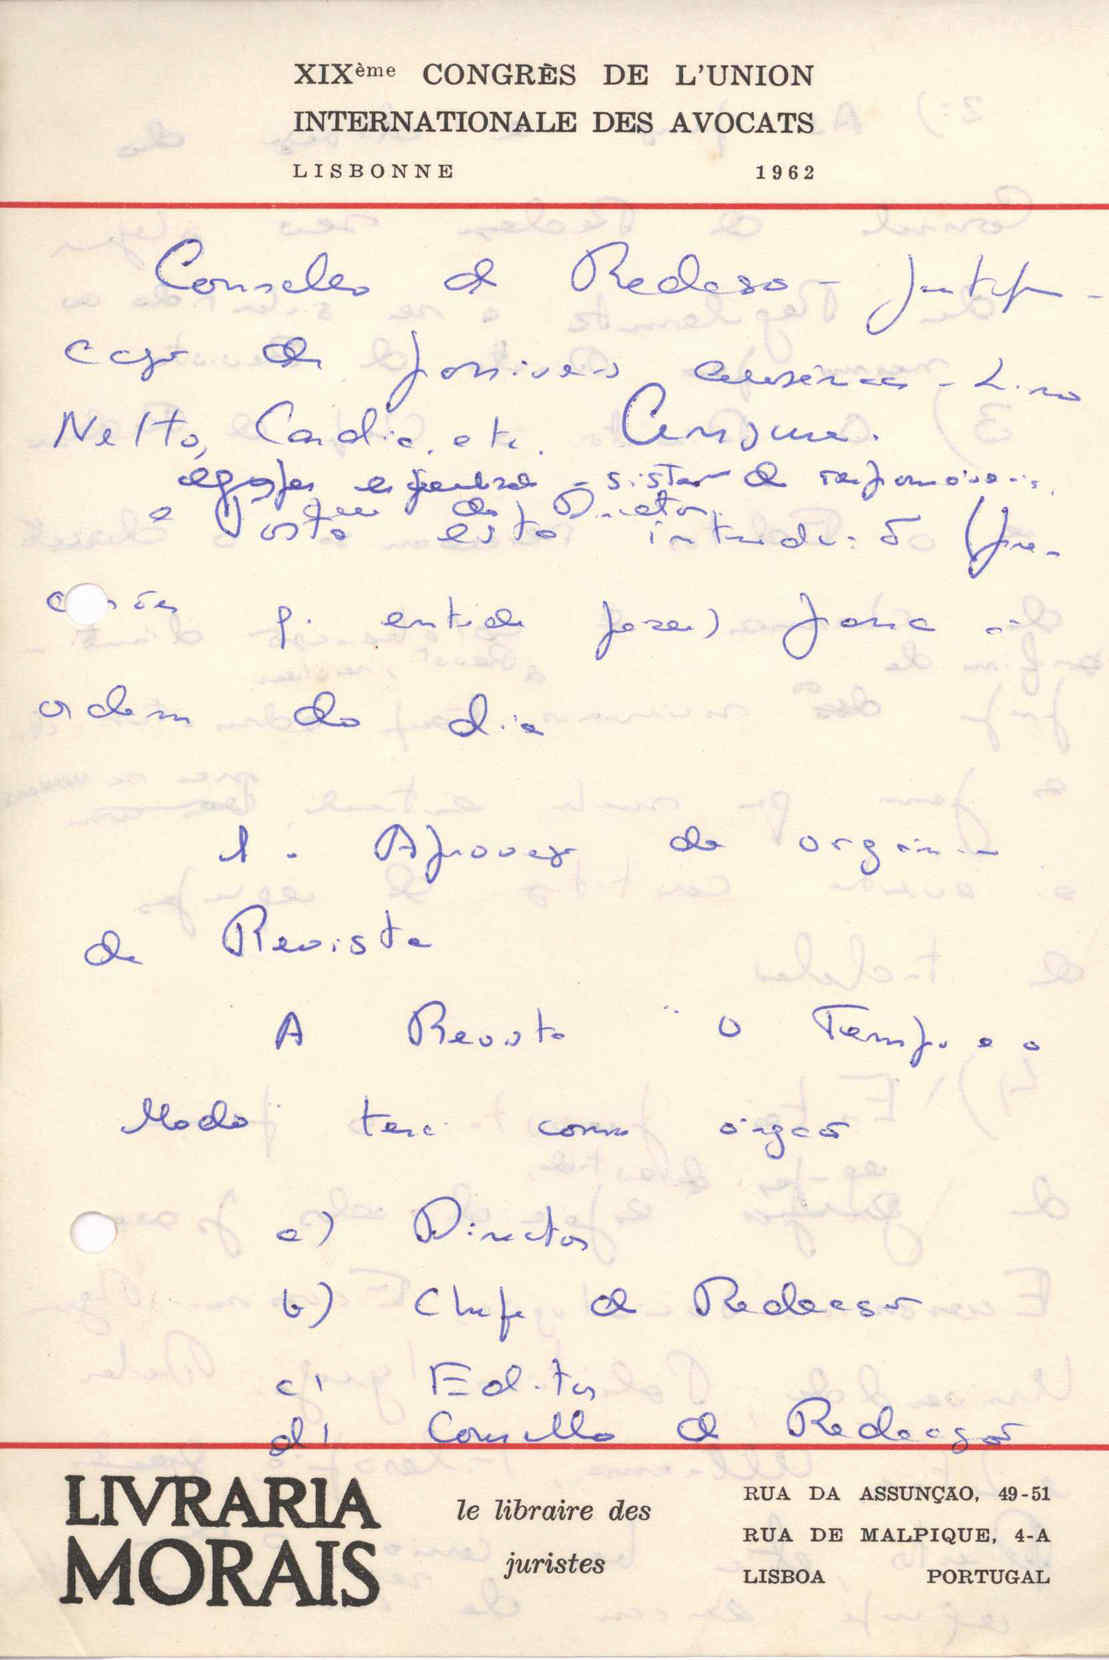 XIXème CONGRÈS DE L'UNION
INTERNATIONALE DES AVOCATS
LISBONNE 1962
Conselho de Redacção - Justifi-
cação de possiveis ausências - Lino
Netto, Cardia, etc. Censura.
- sistema de
do Director.
e Posto esta introdução
p.
ordem do dia
1 - Aprovação da
da Revista
A Revista "O Tempo e o
Modo" terá como orgãos
a) Director
b) Chefe de Redacção
c) Editor
d) Conselho de Redacção
LIVRARIA
MORAIS
le libraire des
juristes
RUA DA ASSUNÇÃO, 49-51
RUA DE MALPIQUE, 4-A
LISBOA PORTUGAL